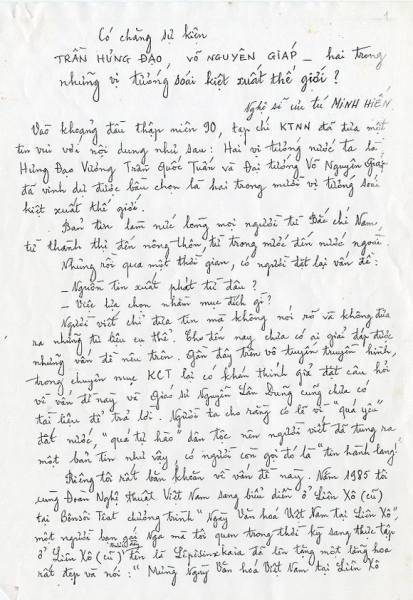 1
Có chăng sự kiện
TRẦN HƯNG ĐẠO, VÕ NGUYÊN GIÁP - hai trong
những vị tướng soái kiệt xuất thế giới?
Nghệ sĩ ưu tú MINH HIẾN.
Vào khoảng đầu thập niên 90, tạp chí KTNN đã đưa một
tin vui với nội dung như sau: Hai vị tướng nước ta là
Hưng Đạo Vương Trần Quốc Tuấn và Đại tướng Võ Nguyên Giáp
đã vinh dự được bầu chọn là hai trong mười vị tướng soái
kiệt xuất thế giới.
Bản tin làm nức lòng mọi người từ Bắc chí Nam,
từ thành thị đến nông thôn, từ trong nước đến nước ngoài.
Nhưng rồi qua một thời gian, có người đặt lại vấn đề:
- Nguồn tin xuất phát từ đâu?
- Việc lựa chọn nhằm mục đích gì?
Người viết chỉ đưa tin mà không nói rõ và không đưa
ra những tư liệu cụ thể. Cho đến nay chưa có ai giải đáp được
những vấn đề nêu trên. Gần đây trên vô tuyến truyền hình,
trong chuyên mục KCT lại có khán thính giả đặt câu hỏi
về vấn đề này và Giáo sư Nguyễn Lân Dũng cũng chưa có
tài liệu để trả lời. Người ta cho rằng có lẽ vì "quá yêu"
đất nước, "quá tự hào" dân tộc nên người viết đã tung ra
một bản tin như vậy có người còn gọi đó là "tin hành lang".
Riêng tôi rất băn khoăn về vấn đề này. Năm 1985 tôi
cùng Đoàn Nghệ thuật Việt Nam sang biểu diễn ở Liên Xô (cũ)
tại Bensôi Teat chương trình "Ngày Văn hoá Việt Nam tại Liên Xô",
một người bạn gái Nga mà tôi quen trong thời kỳ sang thực tập
ở Liên Xô (cũ) tên là Lêpisinxkaia đã lên tặng một lẵng hoa
rất đẹp và nói: "Mừng Ngày Văn hoá Việt Nam tại Liên Xô